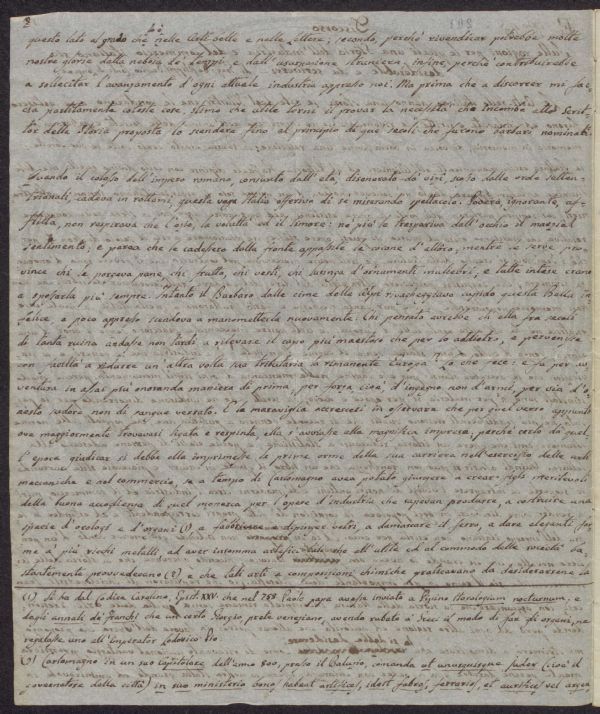 2
questo lato al grado che nelle Arti belle e nelle lettere; secondo, perchè rivendicar potrebbe molte
nostre glorie dalla nebbia de' tempi e dall'usurpazione straniera; infine, perchè contribuirebbe
a sollecitar l'avanzamento d'ogni attuale industria appresso noi. Ma prima che a discorrer mi fac-
cia partitamente coteste cose, stimo che utile torni il provar la necessità che incombe allo Scrit-
tor della Storia proposta lo scendere fino al principio di que' secoli che furono barbari nominati.
Quando il colosso dell'impero romano, consunto dall'età, disonorato da' vizj, scosso dalle orde setten-
trionali, cadeva in rottami, questa vaga Italia offeriva di se miserando spettacolo. Povera, ignorante, af-
flitta, non respirava che l'odio, la voluttà ed il timore: no più le traspariva dall'occhio il marzial
sentimento; e parea che le cadessero dalla fronte appassite le corone d'alloro, mentre le serve pro-
vince chi le porgeva pane, chi frutto, chi vesti, chi ornamenti muliebri, e tutte intese erano
a spossarla più sempre. Intanto il Barbaro dalle cime delle Alpi cupido questa Bella in-
felice e poco appresso scendeva a manometterla nuovamente. Chi pensato avrebbe ch'ella fra secoli
di tanta ruina andasse non tardi a rilevare il capo più maestoso che per lo addietro, e pervenisse
con facilità a ridurre un'altra volta sua tributaria la rimanente Europa? Lo che fece: e fu per av-
ventura in assai più onoranda maniera di prima, per forza cioè d'ingegno non d'armi, per via d'o-
nesto sudore non di sangue versato. E la maraviglia accresceti in osservare che per quel verso appunto
ove maggiormente trovavasi ligata e respinta, ella s'avviasse alla magnifica impresa, perchè certo da quel-
l'epoca giudicar si debbe ella imprimesse le prime orme della sua carriera nell'esercizio delle arti
meccaniche e nel commercio, se a tempo di Carlomagno avea potuto giungere a crear figli meritevoli
della buona accoglienza di quel monarca per l'opere d'industria che sapevan produrre, a costruire una
specie d'orologi e d'organi (1), a fabbricare e dipinger vetri, a damascare il ferro, a dare eleganti for-
me a più ricchi metalli ad aver insomma artefici tali che all'utile ed al commodo delle società ba-
stantemente provvedevano (2) e che tali arti a composizioni chimiche praticavano da desiderarsene la
(1) Si ha dal Codice Carolino, Epist. XXV. che nel 758 Paolo papa avesse inviato a Pipino Horologium nocturnum, e
dagli annali de' franchi che un certo Giorgio prete veneziano, avendo rubato a' Greci il modo di far gli organi, ne
regalasse uno all'Imperator Lodovico Pio.
(2) Carlomagno in un suo capitolare dell'anno 800, presso il Baluzio, comanda ut unusquisque Judex (cioè il
governatore della città) in suo ministerio bonos habeat artifices, idest fabros ferrarios, et aurifices vel argen-